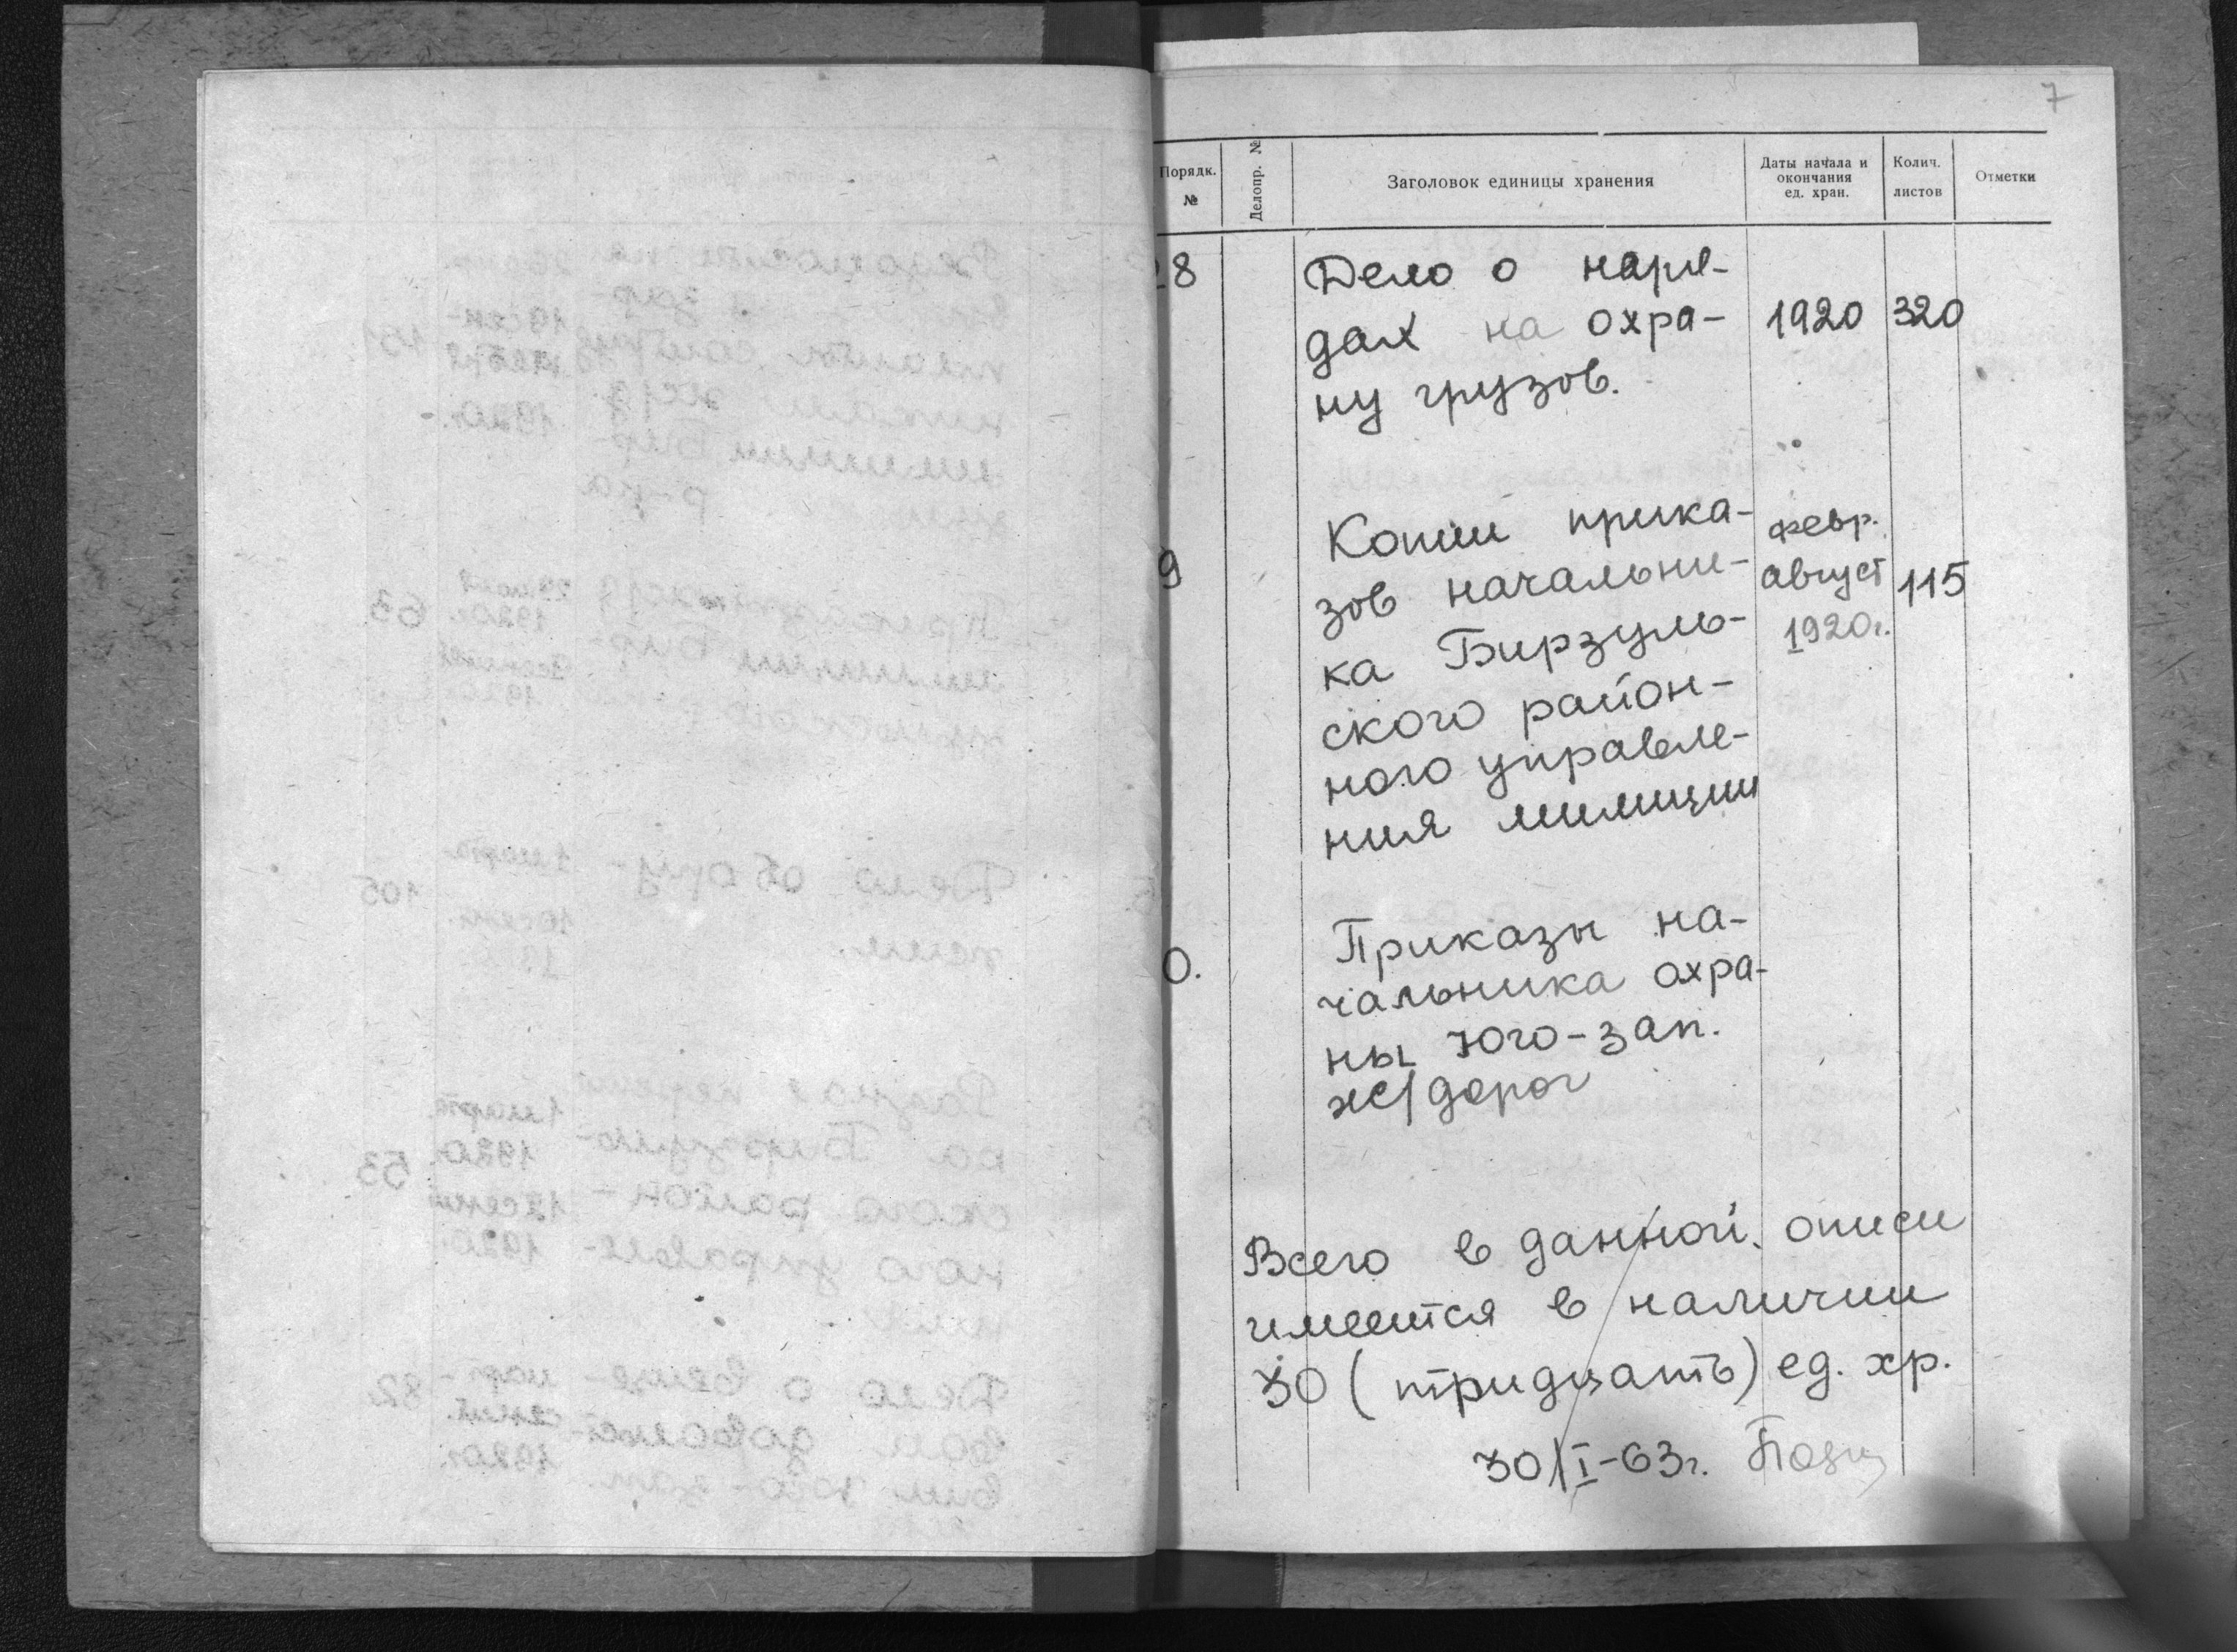 7
Порядк. №
Делопр. №
Заголовок единицы хранения
Даты начала и окончания ед. хран.
Колич. листов
Отметки
28 Дело о наря-
дах на охра- 1920 320
ну грузов.
Копии прика- февр.
9 зов начальни- август 115
ка Бирзуль- 1920г.
ского район-
ного управле-
ния милиции
Приказы на-
0. чальника охра-
ны Юго-зап.
ж/дорог
Всего в данной описи
имеется в наличии
30 (тридцать) ед. хр.
30/I-63г.